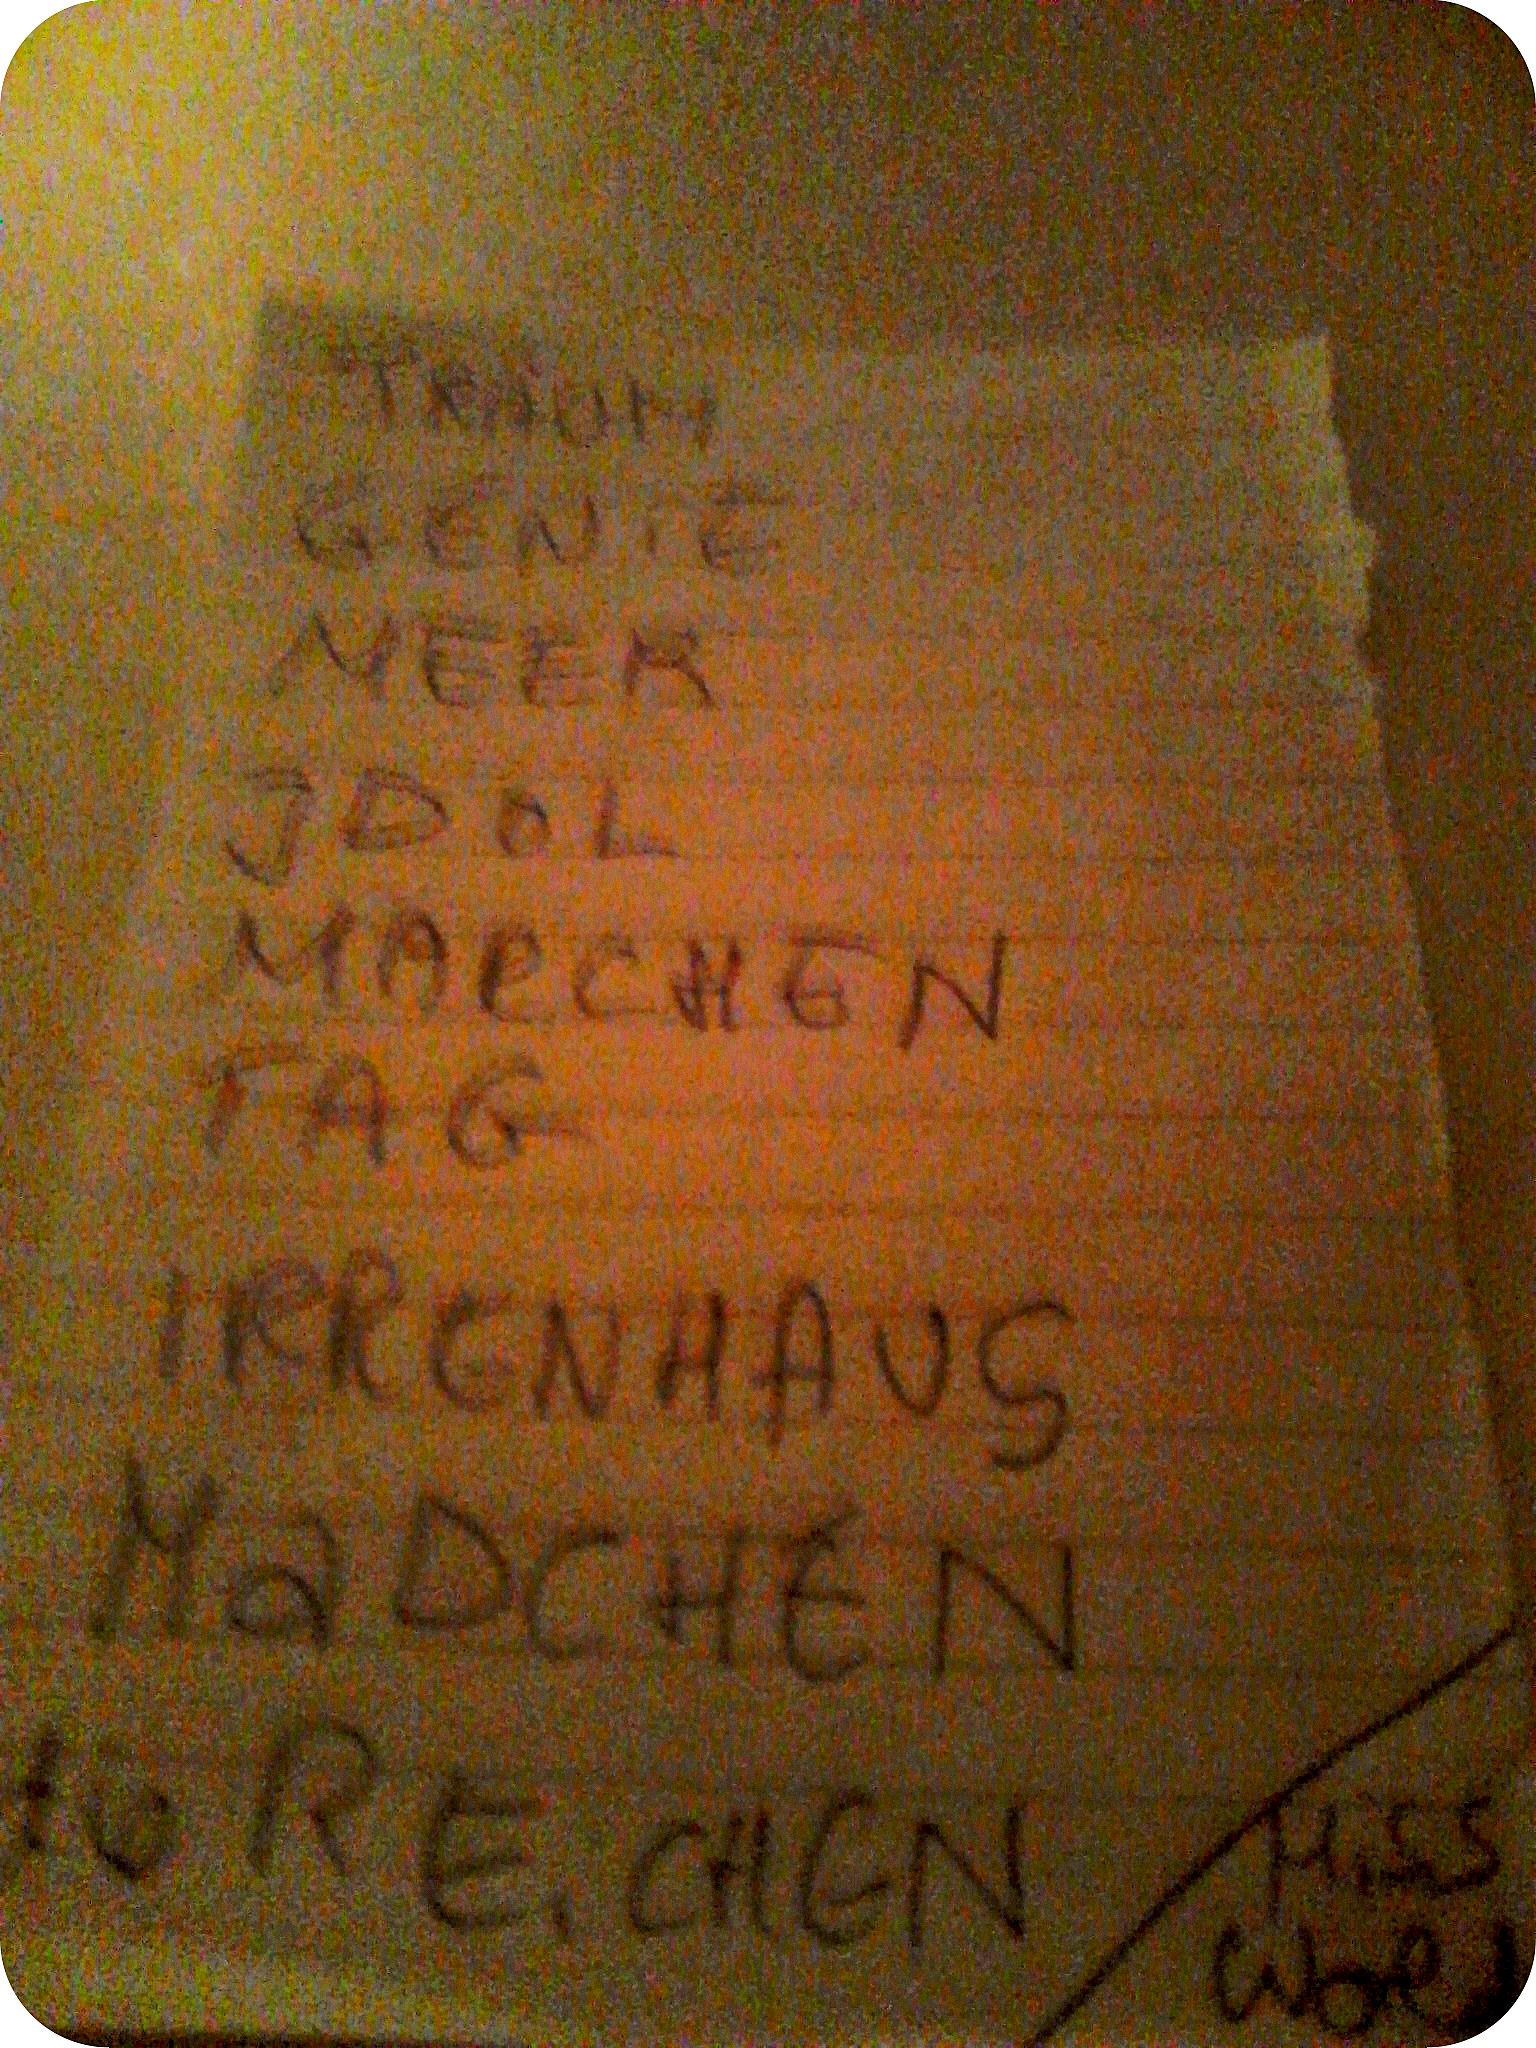 TRAUM
GENIE
MEER
JDOL
MARCHEN
TAG
IRRENHAUS
MaDCHEN
REiCHEN
MiSS